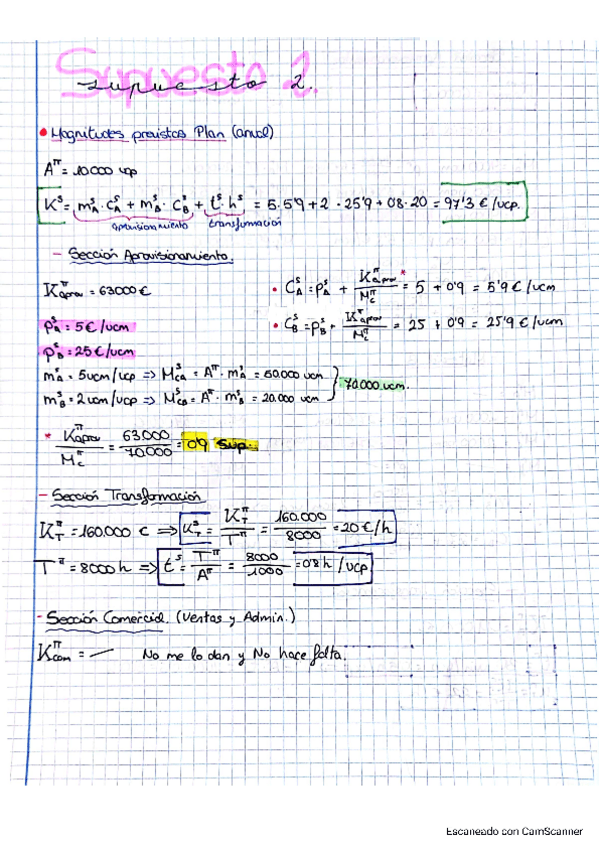 Supuesto 2.
supuesto 2.
• Magnitudes previstas Plan (anual)
A^π = 10000 ucp
K^s = m^s_A · c^s_A + m^s_B · c^s_B + t^s h^s = 5·5'9 + 2·25'9 + 0'8·20 = 97'3 €/ucp.
aprovisionamiento transformación
- Sección Aprovisionamiento.
K^π_aprov = 63000 €
• C^s_A = p^s_A + K^π_aprov* / M^π_c = 5 + 0'9 = 5'9 €/ucm
p^s_A = 5 €/ucm
• C^s_B = p^s_B + K^π_aprov / M^π_c = 25 + 0'9 = 25'9 €/ucm
p^s_B = 25 €/ucm
m^s_A = 5 ucm/ucp => M^s_CA = A^π · m^s_A = 50.000 ucm
m^s_B = 2 ucm/ucp => M^s_CB = A^π · m^s_B = 20.000 ucm } 70.000 ucm.
* K^π_aprov / M^π_c = 63.000 / 70.000 = 0'9 Sup..
- Sección Transformación
K^π_T = 160.000 € => K^s_T = K^π_T / T^π = 160.000 / 8000 = 20 €/h
T^π = 8000 h => t^s = T^π / A^π = 8000 / 1000 = 0'8 h /ucp
- Sección Comercial. (Ventas y Admin.)
K^π_com = — No me lo dan y No hace falta.
Escaneado con CamScanner